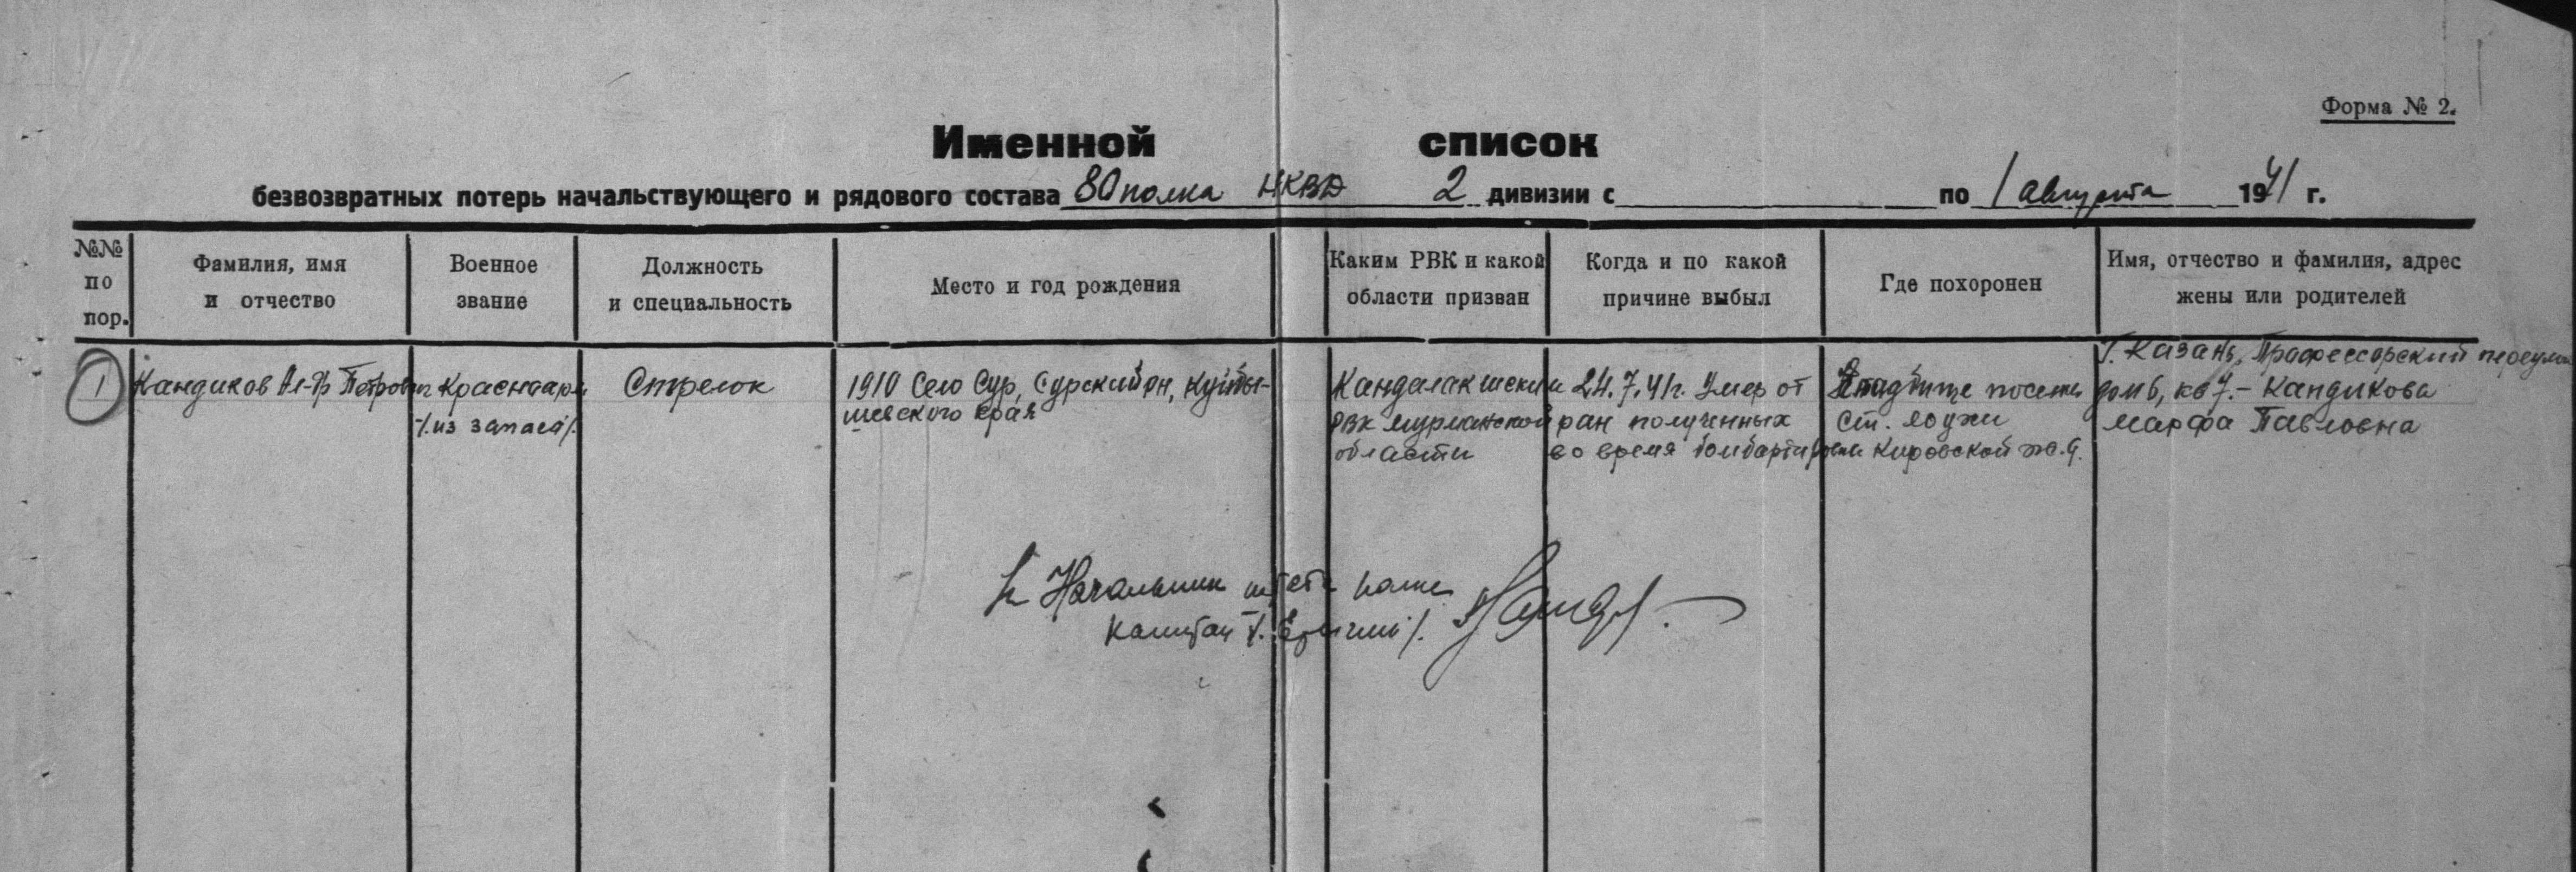 Форма № 2.
Именной список
безвозвратных потерь начальствующего и рядового состава 80 полка НКВД 2 дивизии с по 1 августа 1941 г.
№№ по пор.
Фамилия, имя и отчество
Военное звание
Должность и специальность
Место и год рождения
Каким РВК и какой области призван
Когда и по какой причине выбыл
Где похоронен
Имя, отчество и фамилия, адрес жены или родителей
1
Кандиков Ал-др Петрович
Красноарм
/из запаса/.
Стрелок
1910 Село Сур, Сурский рн, Куйбы-
шевского края
Кандалакшский
РВК Мурманской
области
24.7.41г. Умер от
ран полученных
во время
Кладбище
ст. Лоухи
Кировской ж.д.
Г. Казань, Профессорский
дом 6, кв 7. - Кандикова
Марфа Павловна
Начальник штаба
Капитан